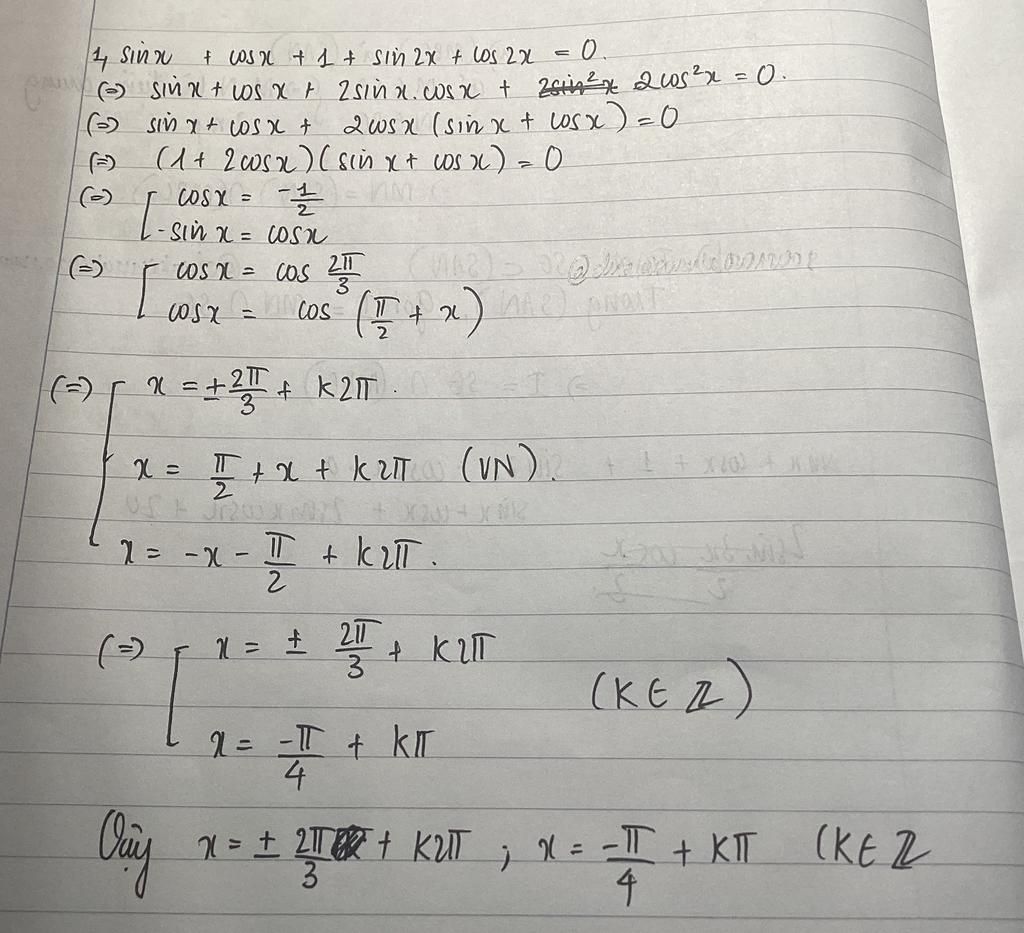 1, sin x + cos x + 1 + sin 2x + cos 2x = 0.
(=) sin x + cos x + 2 sin x. cos x + 2sin²x 2 cos²x = 0.
(=) sin x + cos x + 2 cos x (sin x + cos x) = 0
(=) (1 + 2 cos x)(sin x + cos x) = 0
(=) [ cos x = -1/2
- sin x = cos x
(=) [ cos x = cos 2π/3
cos x = cos (π/2 + x)
(=) [ x = ± 2π/3 + k2π.
x = π/2 + x + k2π (VN).
x = -x - π/2 + k2π.
(=) [ x = ± 2π/3 + k2π
(k ∈ ℤ)
x = -π/4 + kπ
Vậy x = ± 2π/3 + k2π ; x = -π/4 + kπ (k ∈ ℤ